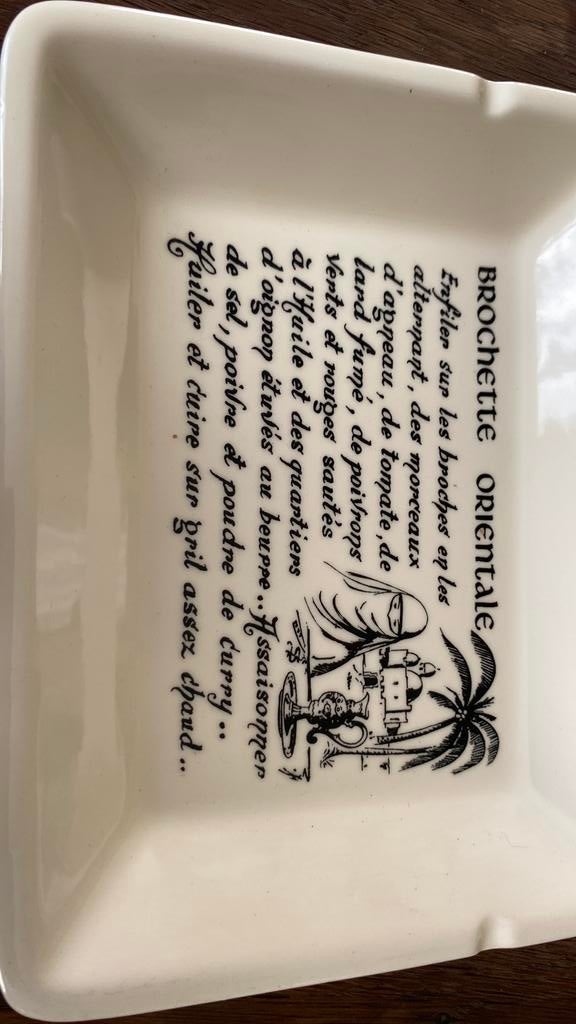 BROCHETTE ORIENTALE
Enfiler sur les broches en les
alternant, des morceaux
d'agneau, de tomate, de
lard fumé, de poivrons
verts et rouges sautés
à l'Huile et des quartiers
d'oignon étuvés au beurre.. Assaisonner
de sel, poivre et poudre de curry..
Huiler et cuire sur gril assez chaud..